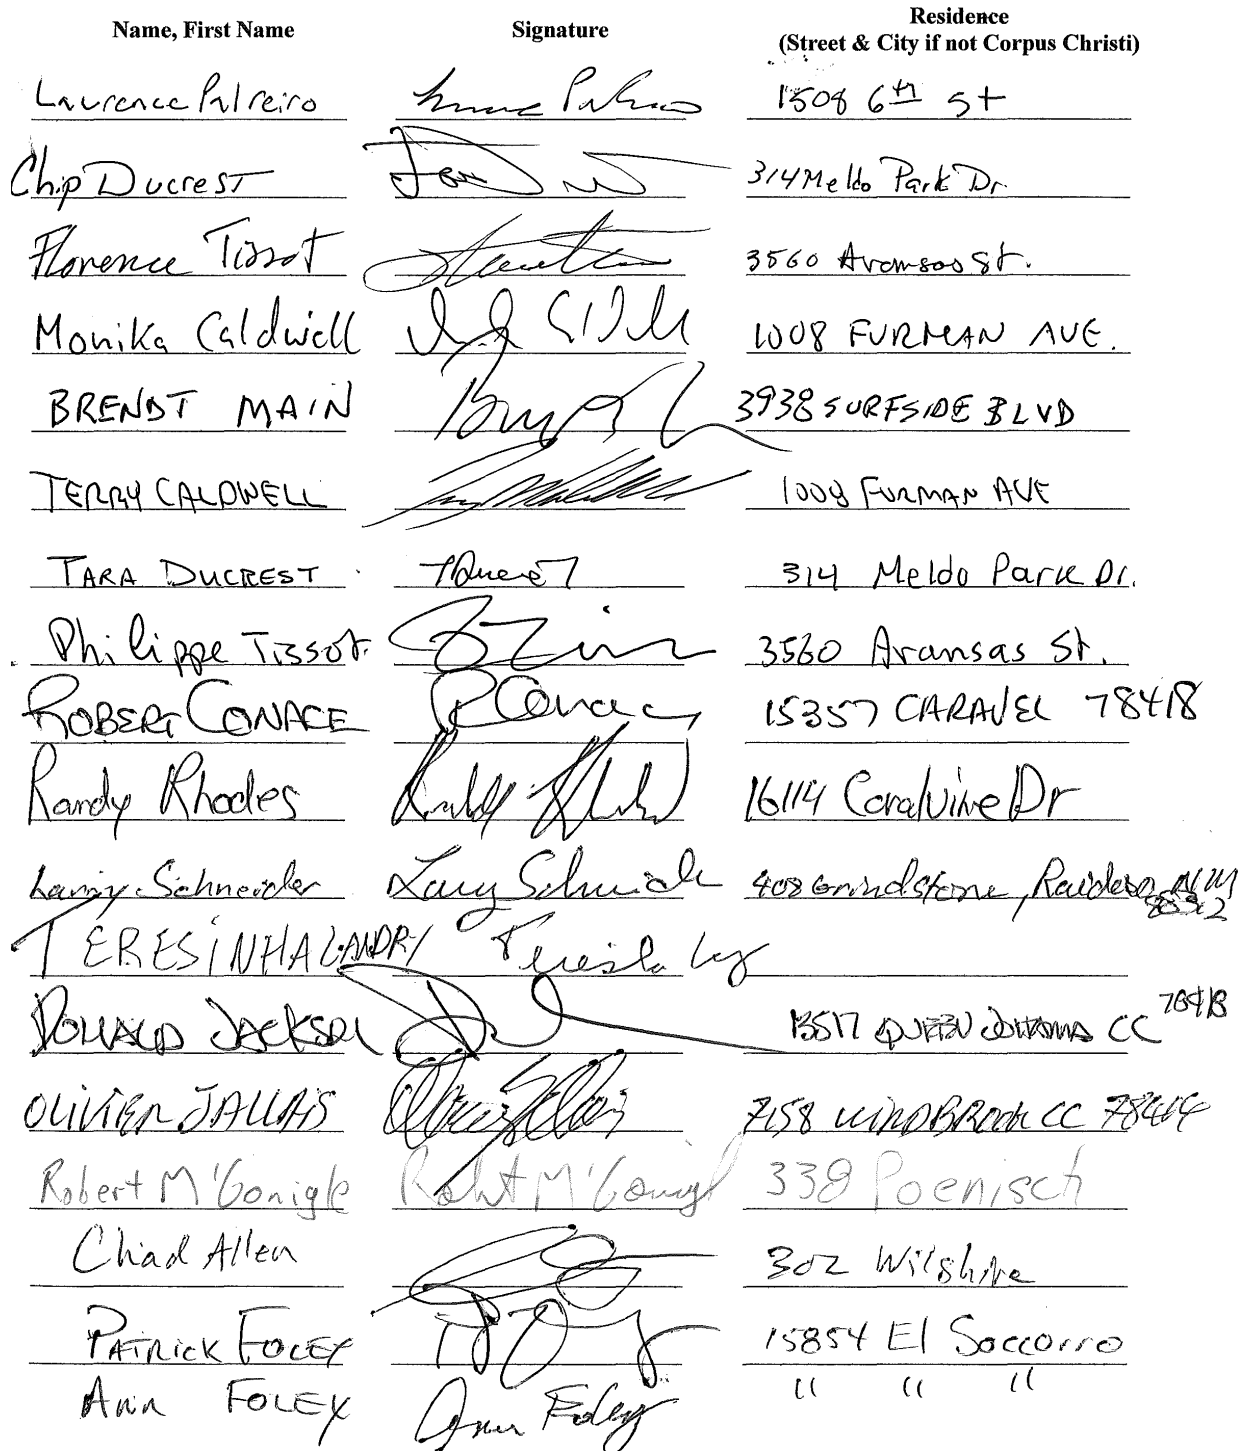 Name, First Name Signature Residence
(Street & City if not Corpus Christi)
Laurence Palreiro 1508 6th St
Chip Ducrest 314 Meldo Park Dr.
Florence Tissot 3560 Aransas St.
Monika Caldwell 1008 FURMAN AVE.
BRENDT MAIN 3938 SURFSIDE BLVD
TERRY CALDWELL 1008 FURMAN AVE
TARA DUCREST TDucrest 314 Meldo Park Dr.
Philippe Tissot 3560 Aransas St.
ROBERT CONACE R Conace 15357 CARAVEL 78418
Randy Rhodes 16114 Coralvine Dr
Larry Schneider Larry Schneider 402 Grindstone, Ruidoso NM
TERESINHA LANDRY
DONALD JACKSON CC 78418
OLIVIER JALLAIS 7158 WINDBROOK CC 78414
Robert M'Gonigle Robert M'Gonigl 338 Poenisch
Chad Allen 302 Wilshire
PATRICK FOLEY 15854 El Soccorro
Ann FOLEY Ann Foley " " "